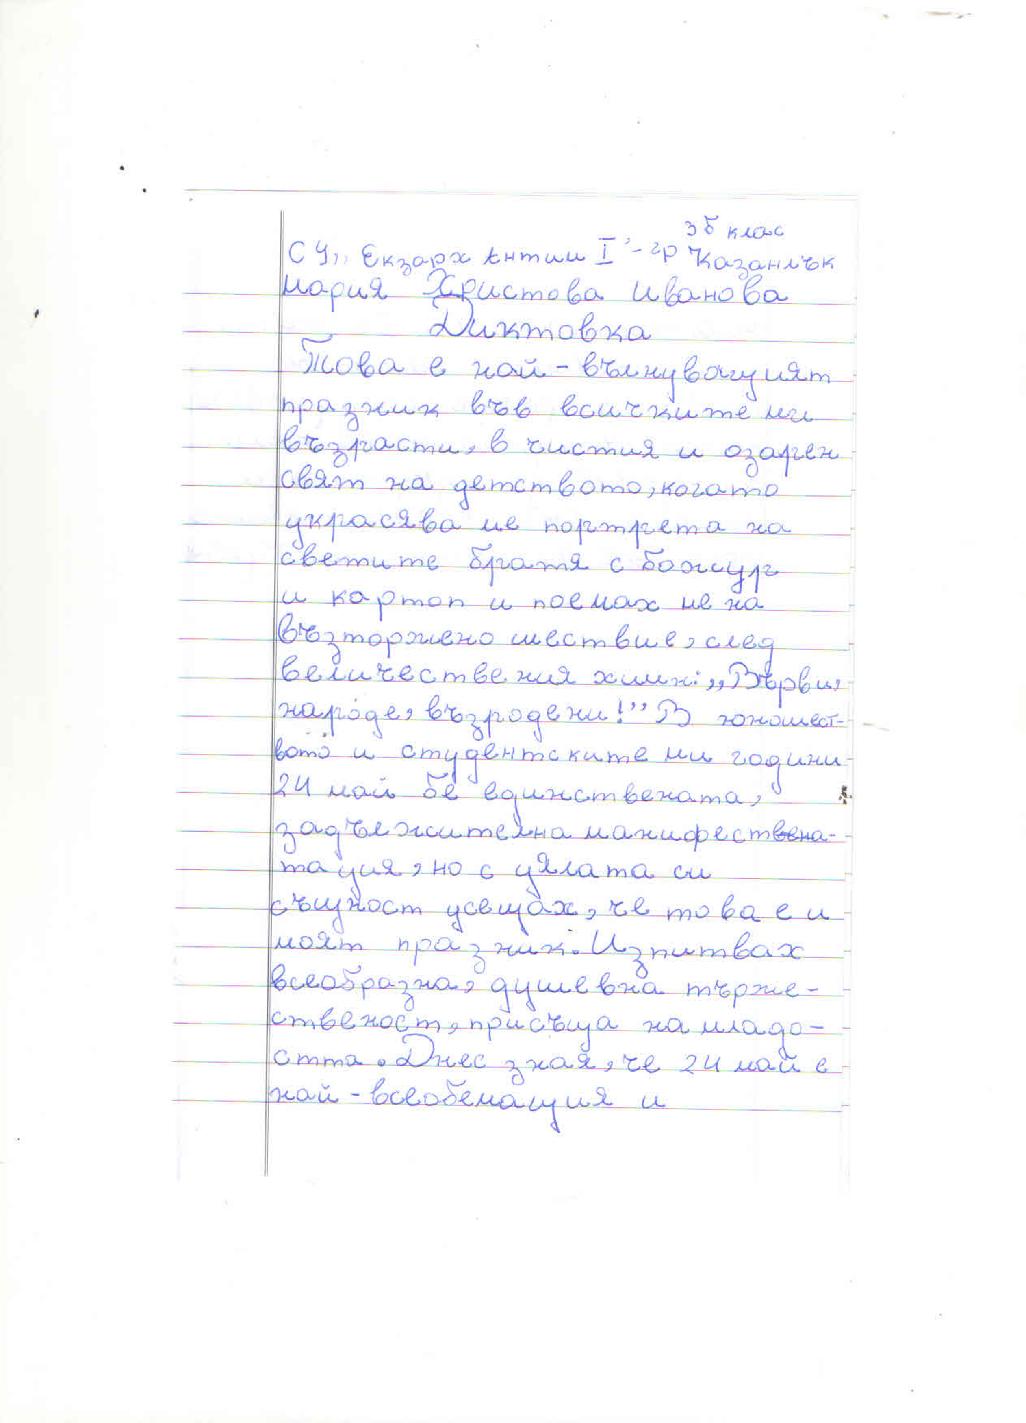 3б клас
СУ,, Екзарх Антим I"-гр Казанлък
Мария Христова Иванова
Диктовка
Това е най-вълнуващият
празник във всичките ми
възрасти, в чистия и озарен
свят на детството, когато
украсява ме портрета на
светите братя с божур
и картоп и поемах ме на
възторжено шествие, след
величествения химн: ,,Върви,
народе, възродени!" В юношест-
вото и студентските ми години
24 май бе единствената,
задължителна манифествена-
тация, но с цялата си
същност усещах, че това е и
моят празник. Изпитвах
всеобразна, душевна търже-
ственост, присъща на младо-
стта. Днес зная, че 24 май е
най-всеобемащия и